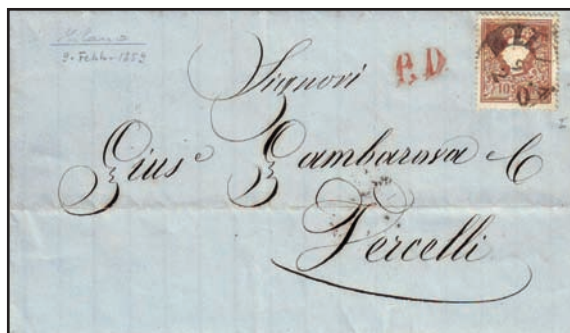 Milano
9. Febb. 1859
P.D.
10
Signori
Gius.e Gambarova & C
Vercelli
I